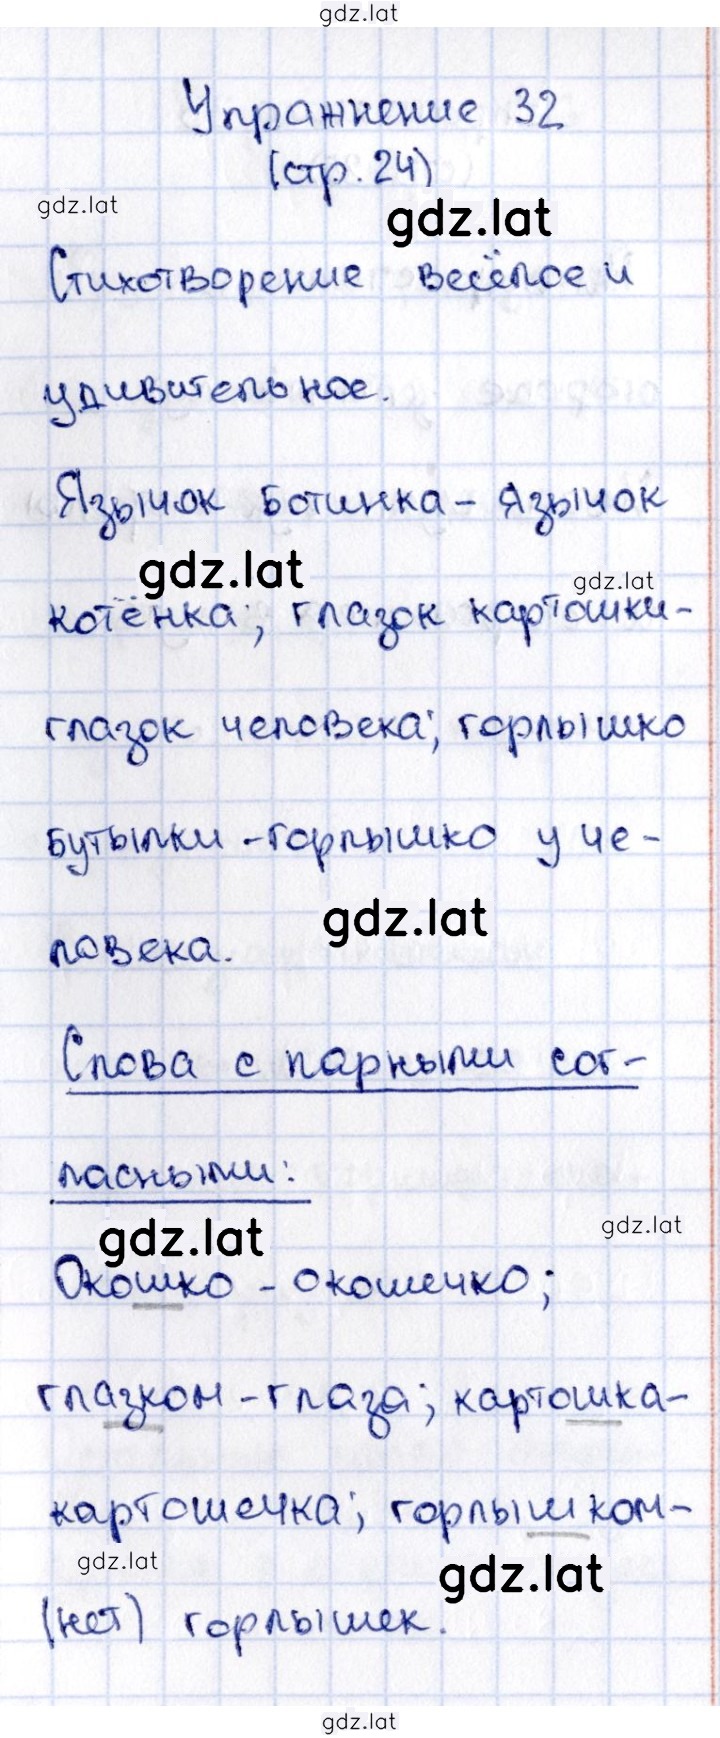 gdz.lat
Упражнение 32
(стр. 24)
gdz.lat
gdz.lat
Стихотворение весёлое и
удивительное.
Язычок ботинка - язычок
gdz.lat
gdz.lat
котёнка; глазок картошки-
глазок человека; горлышко
бутылки - горлышко у че-
gdz.lat
ловека.
Слова с парными сог-
ласными:
gdz.lat
gdz.lat
Окошко - окошечко;
глазком - глаза; картошка-
картошечка; горлышком-
gdz.lat
gdz.lat
(нет) горлышек.
gdz.lat